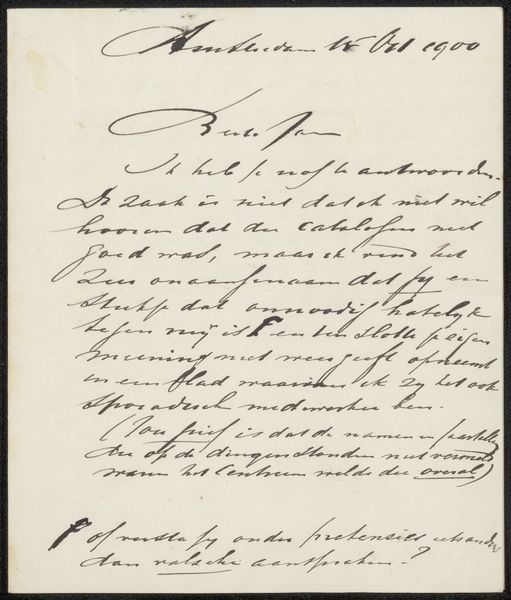 Amsterdam 15 Oct 1900
Beste Jan
Ik heb je nog te antwoorden.
De zaak is niet dat ik niet wil
hooren dat die catalogus niet
goed was, maar ik vind het
zeer onaangenaam dat jy een
stukje dat onnoodig hatelyk
tegen mij is en ten slotte je eigen
meening niet weergeeft opneemt
in een blad waaraan ik zy het ook
sporadisch medewerker ben.
(Jou grief is dat de namen en
die op de dingen stonden niet vermeld
waren het Centrum wilde die overal)
of versta jy onder pretensies iets anders
dan valsche aanspraken?